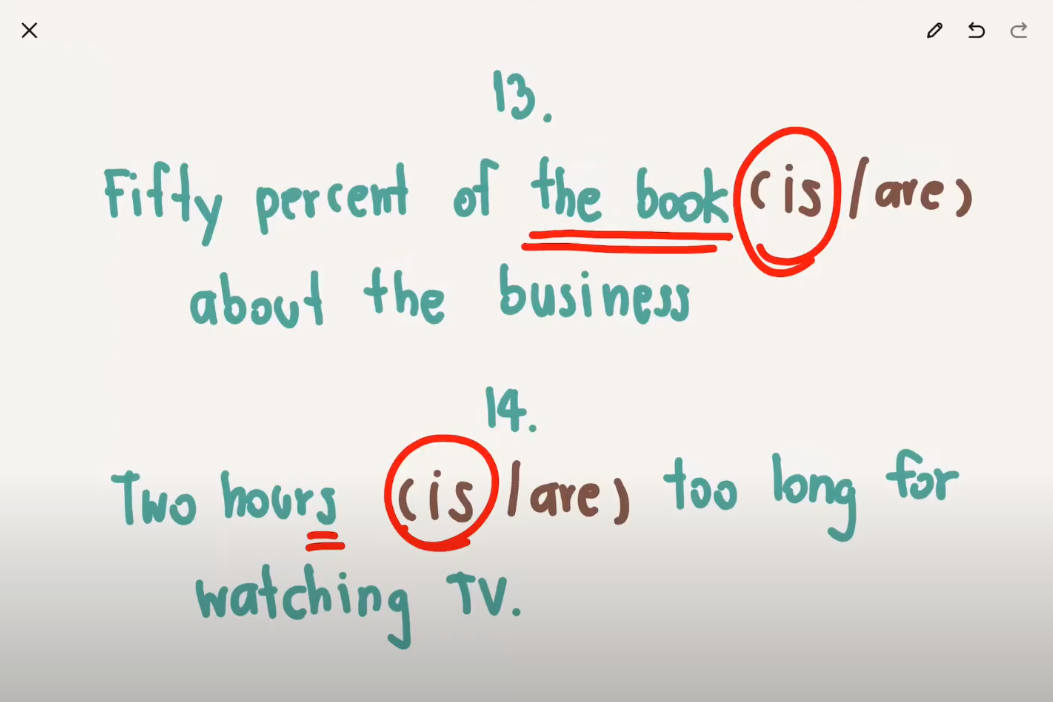 13.
Fifty percent of the book (is/are)
about the business
14.
Two hours (is/are) too long for
watching TV.